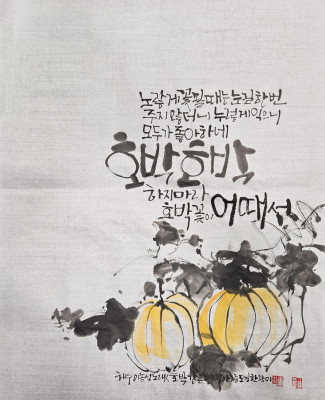 노랗게 꽃필때는 눈길한번
주지 않더니 누렇게익으니
모두가 좋아하네
호박호박
하지마라
호박꽃이 어때서